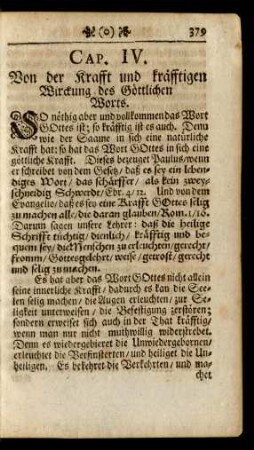 (o) 379
CAP. IV.
Von der Krafft und kräfftigen
Wirckung des Göttlichen
Worts.
SO nöthig aber und vollkommen das Wort
GOttes ist; so kräfftig ist es auch. Denn
wie der Saame in sich eine natürliche
Krafft hat: so hat das Wort GOttes in sich eine
göttliche Krafft. Dieses bezeuget Paulus/wenn
er schreibet von dem Gesetz/ daß es sey ein leben-
diges Wort/ das schärffer/ als kein zwey-
schneidig Schwerdt/ Ebr. 4/12. Und von dem
Evangelio/daß es sey eine Krafft GOttes selig
zu machen alle/ die daran glauben/Rom. 1/16.
Darum sagen unsere Lehrer: daß die heilige
Schrifft tüchtig/ dienlich/ kräfftig und be-
quem sey/ die Menschen zu erleuchten/gerecht/
fromm/ Gottesgelehrt/ weise/ getrost/ gerecht
und selig zu machen.
Es hat aber das Wort GOttes nicht allein
seine innerliche Krafft/ dadurch es kan die See-
len selig machen/ die Augen erleuchten/ zur Se-
ligkeit unterweisen/ die Befestigung zerstören;
sondern erweiset sich auch in der That kräfftig/
wenn man nur nicht muthwillig widerstrebet.
Denn es wiedergebieret die Unwiedergebornen/
erleuchtet die Verfinsterten/ und heiliget die Un-
heiligen. Es bekehret die Verkehrten/ und ma-
chet